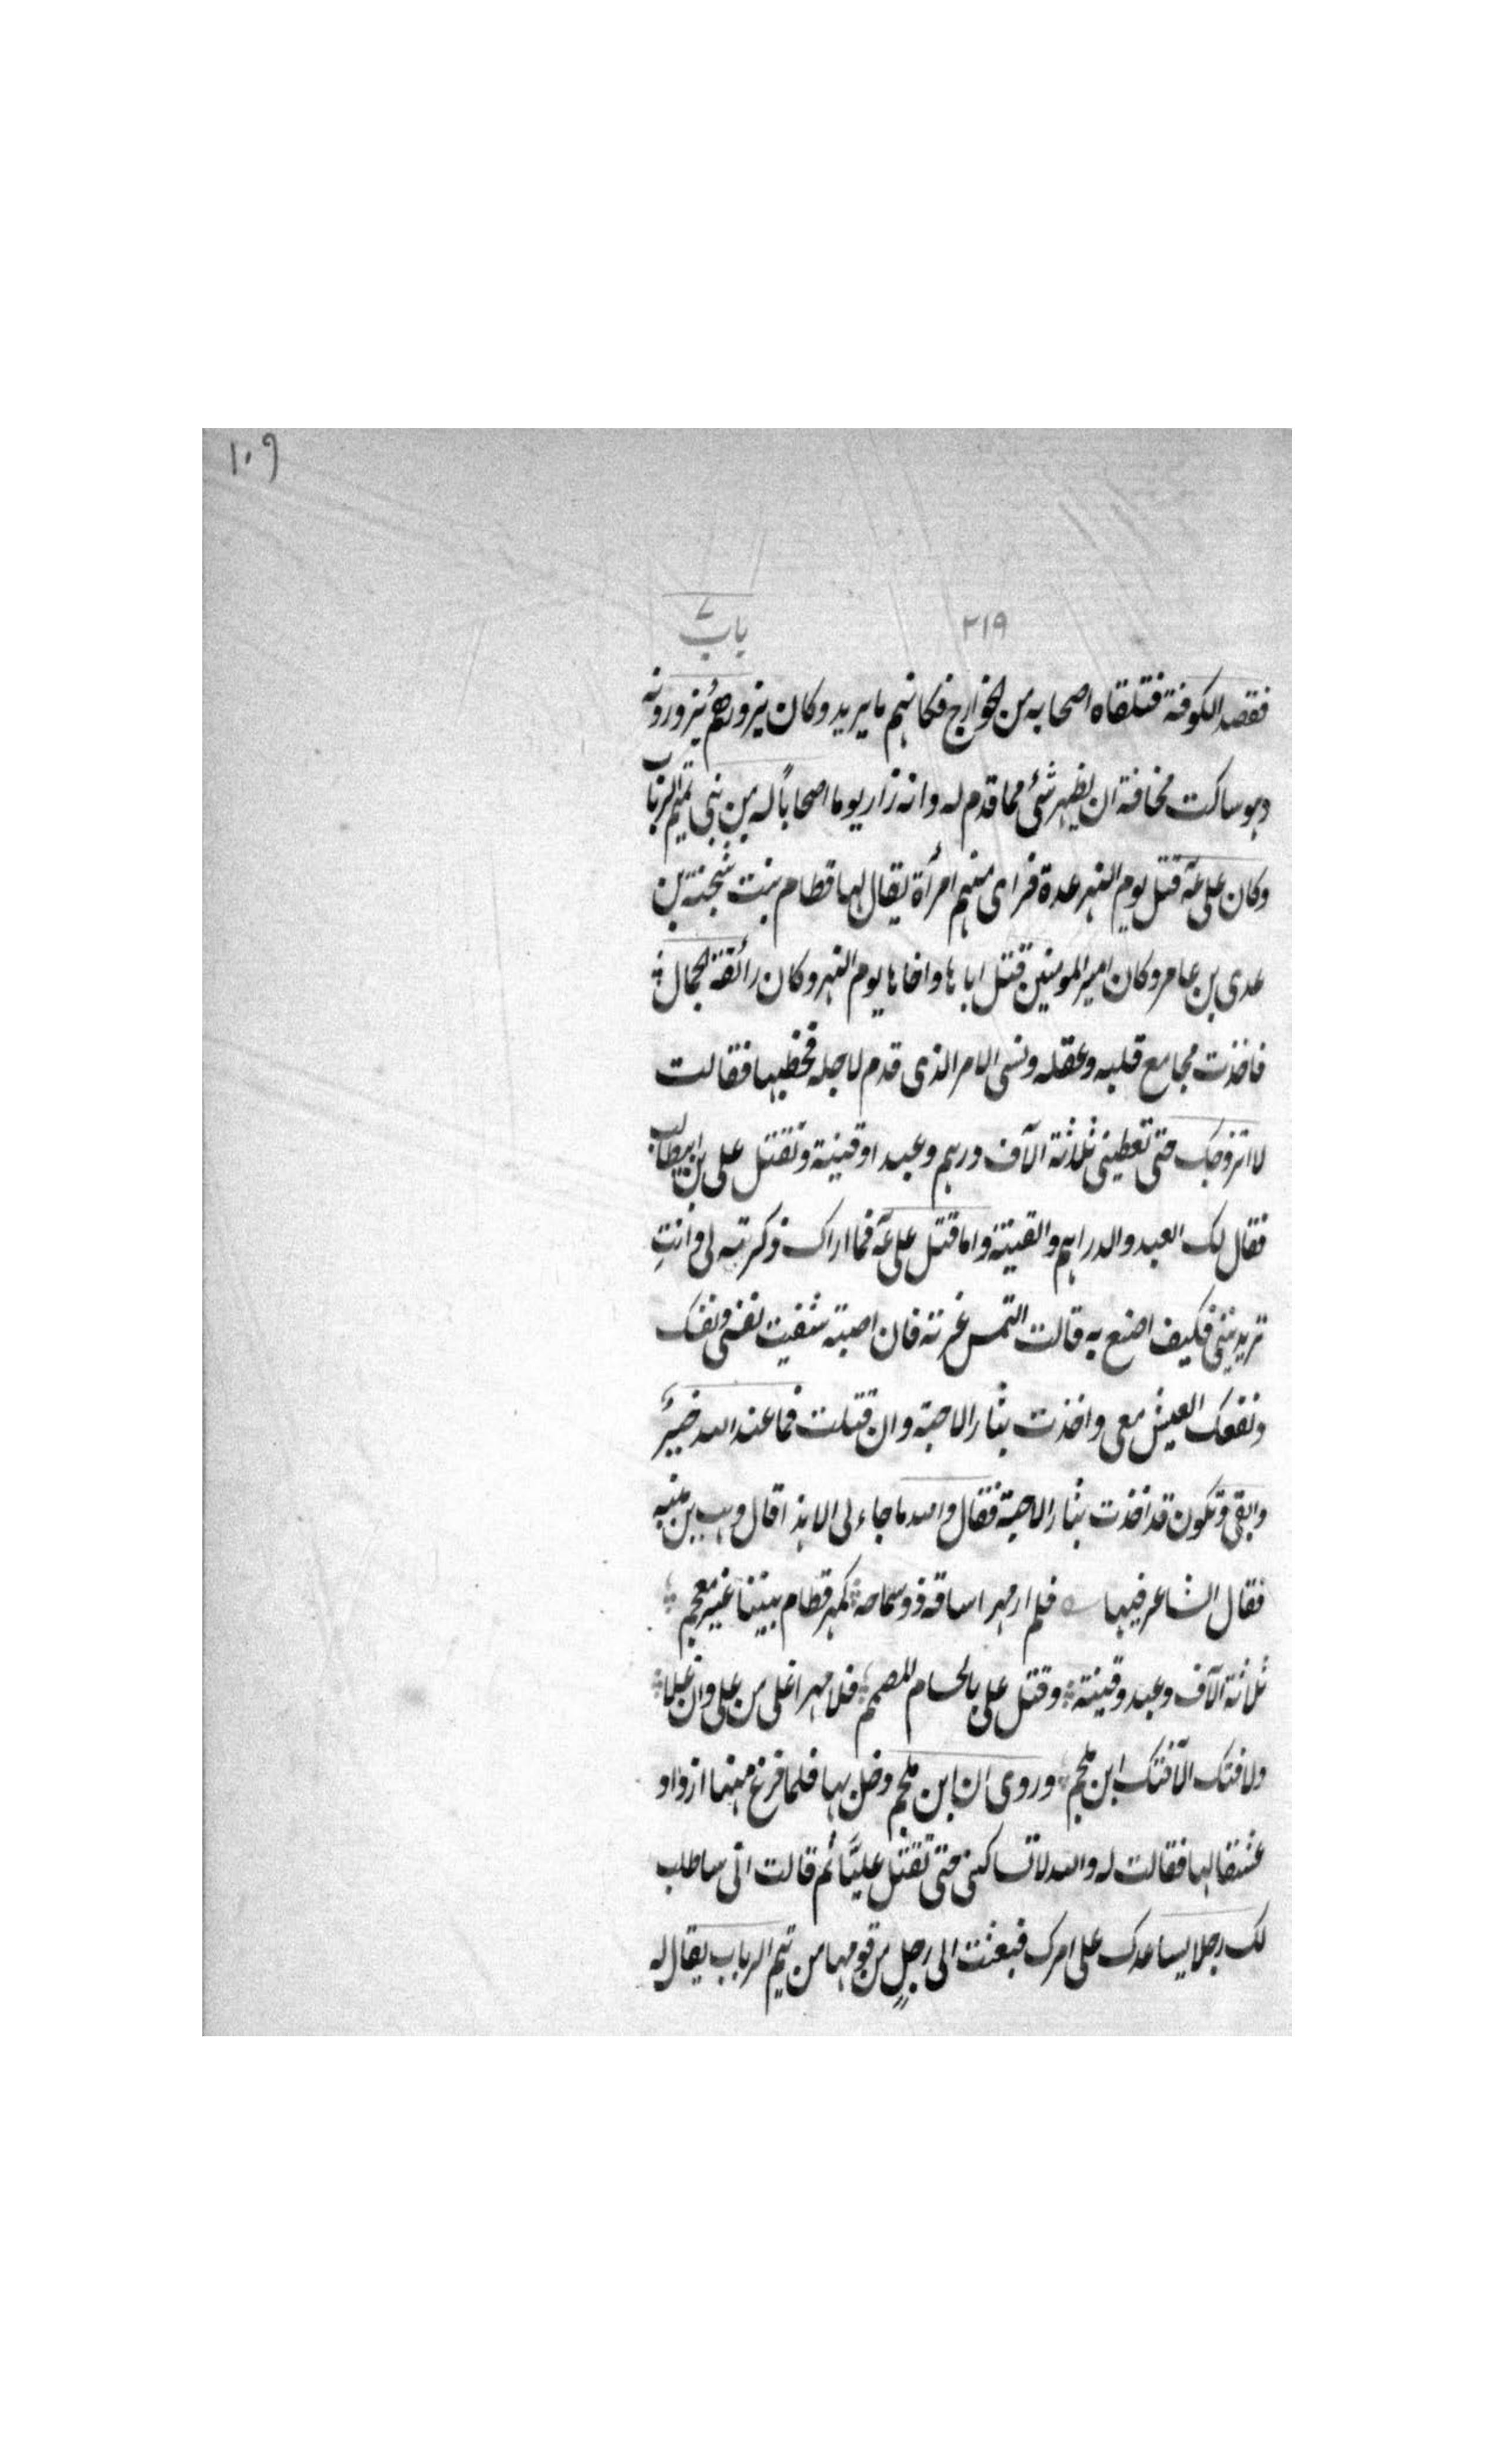 ١٠٩
٢١٩ باب ٧
فقصد الكوفة فتلقاه اصحابه من الخوارج فكاتبهم ما يريد وكان يزورهم يزورونه
وهو ساكت مخافة ان يظهر شئ مما قدم له وانه زار يوما اصحاباً له من بنى تيم الرباب
وكان على عّه قتل يوم النهر عدة فراى منهم امرأة يقال لها قطام بنت شجنة بن
عدى بن عامر وكان امير المومنين قتل اباها واخاها يوم النهر وكان رائقة الجمال
فاخذت مجامع قلبه وعقله ونسى الامر الذى قدم لاجله فخطبها فقالت
لا اتزوجك حتى تعطينى ثلاثة آلاف درهم وعبد او قينة وتقتل على بن ابيطالب
فقال لك العبد والدراهم والقينة واما قتل على عّه فما اراك ذكرته لى وانتِ
تريدينى فكيف اصنع به قالت التمس غرته فان اصبته شفيت نفسى ونفسك
ونفعك العيش معى واخذت بثار الاحبة وان قتلت فما عند الله خيرٌ
وابقى وتكون قد اخذت بثار الاحبة فقال والله ما جاء لى الا هذا قال وهب بن منبه
فقال الشاعر فيها فلم ار مهرا ساقه ذو سماحة كمهر قطام بيننا غير معجم
ثلاثة آلاف وعبد وقينة وقتل على بالحسام المصمم فلا مهرا غلى من على وان غلا
ولا فتك الّا فتك ابن ملجم وروى ان ابن ملجم دخل بها فلما فرغ منها ازداد
عشقا لها فقالت له والله لا تساكننى حتى تقتل عليّا ثم قالت انّى ساطلب
لك رجلا يساعدك على امرك فبعثت الى رجلٍ من قومها من تيم الرباب يقال له